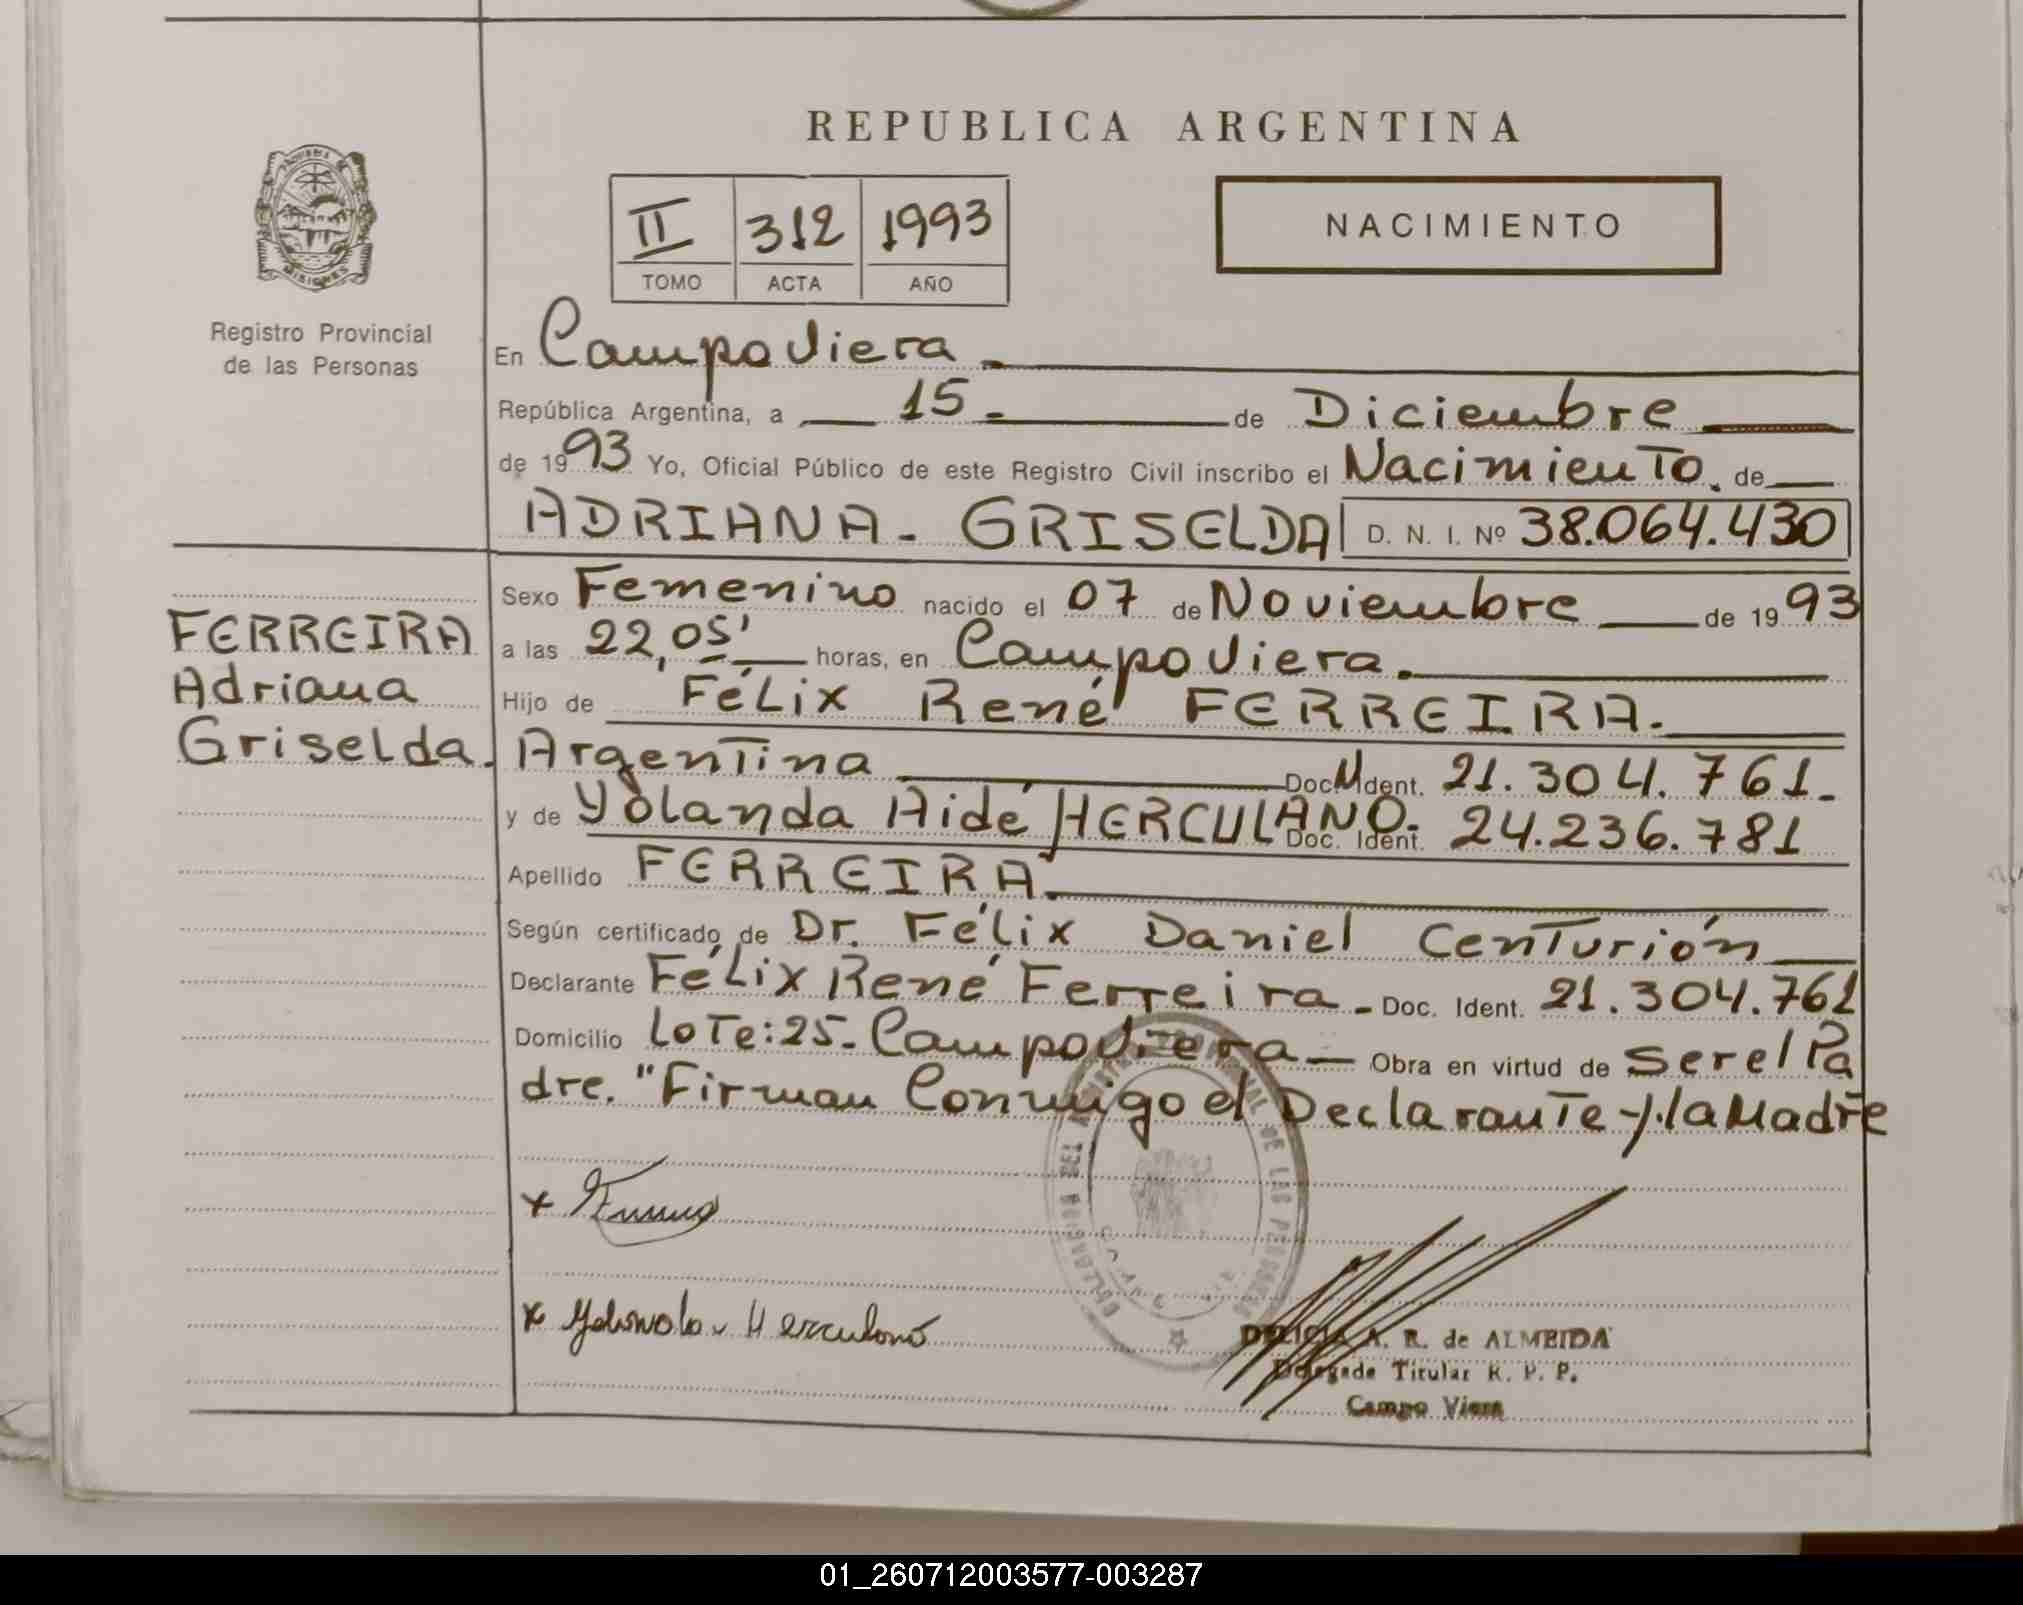 REPUBLICA ARGENTINA
II 312 1993
TOMO ACTA AÑO
NACIMIENTO
MISIONES
Registro Provincial
de las Personas
En Campo Viera.
República Argentina, a 15 de Diciembre
de 1993 Yo, Oficial Público de este Registro Civil inscribo el Nacimiento. de
ADRIANA - GRISELDA D. N. I. Nº 38.064.430
FERREIRA
Adriana
Griselda.
Sexo Femenino nacido el 07 de Noviembre de 1993
a las 22,05' horas, en Campo Viera.
Hijo de Félix René FERREIRA.
Argentina Doc. Ident. 21.304.761.
y de Yolanda Aidé HERCULANO. Doc. Ident. 24.236.781
Apellido FERREIRA.
Según certificado de Dr. Félix Daniel Centurión
Declarante Félix René Ferreira - Doc. Ident. 21.304.761
Domicilio Lote: 25 - Campo Viera - Obra en virtud de Ser el Pa
dre. "Firman Conmigo el Declarante y la Madre
x
x Yolanda Herculano
DELEGACION DEL REGISTRO PROVINCIAL DE LAS PERSONAS
DELICIA A. R. de ALMEIDA
Delegada Titular R. P. P.
Campo Viera
01_260712003577-003287